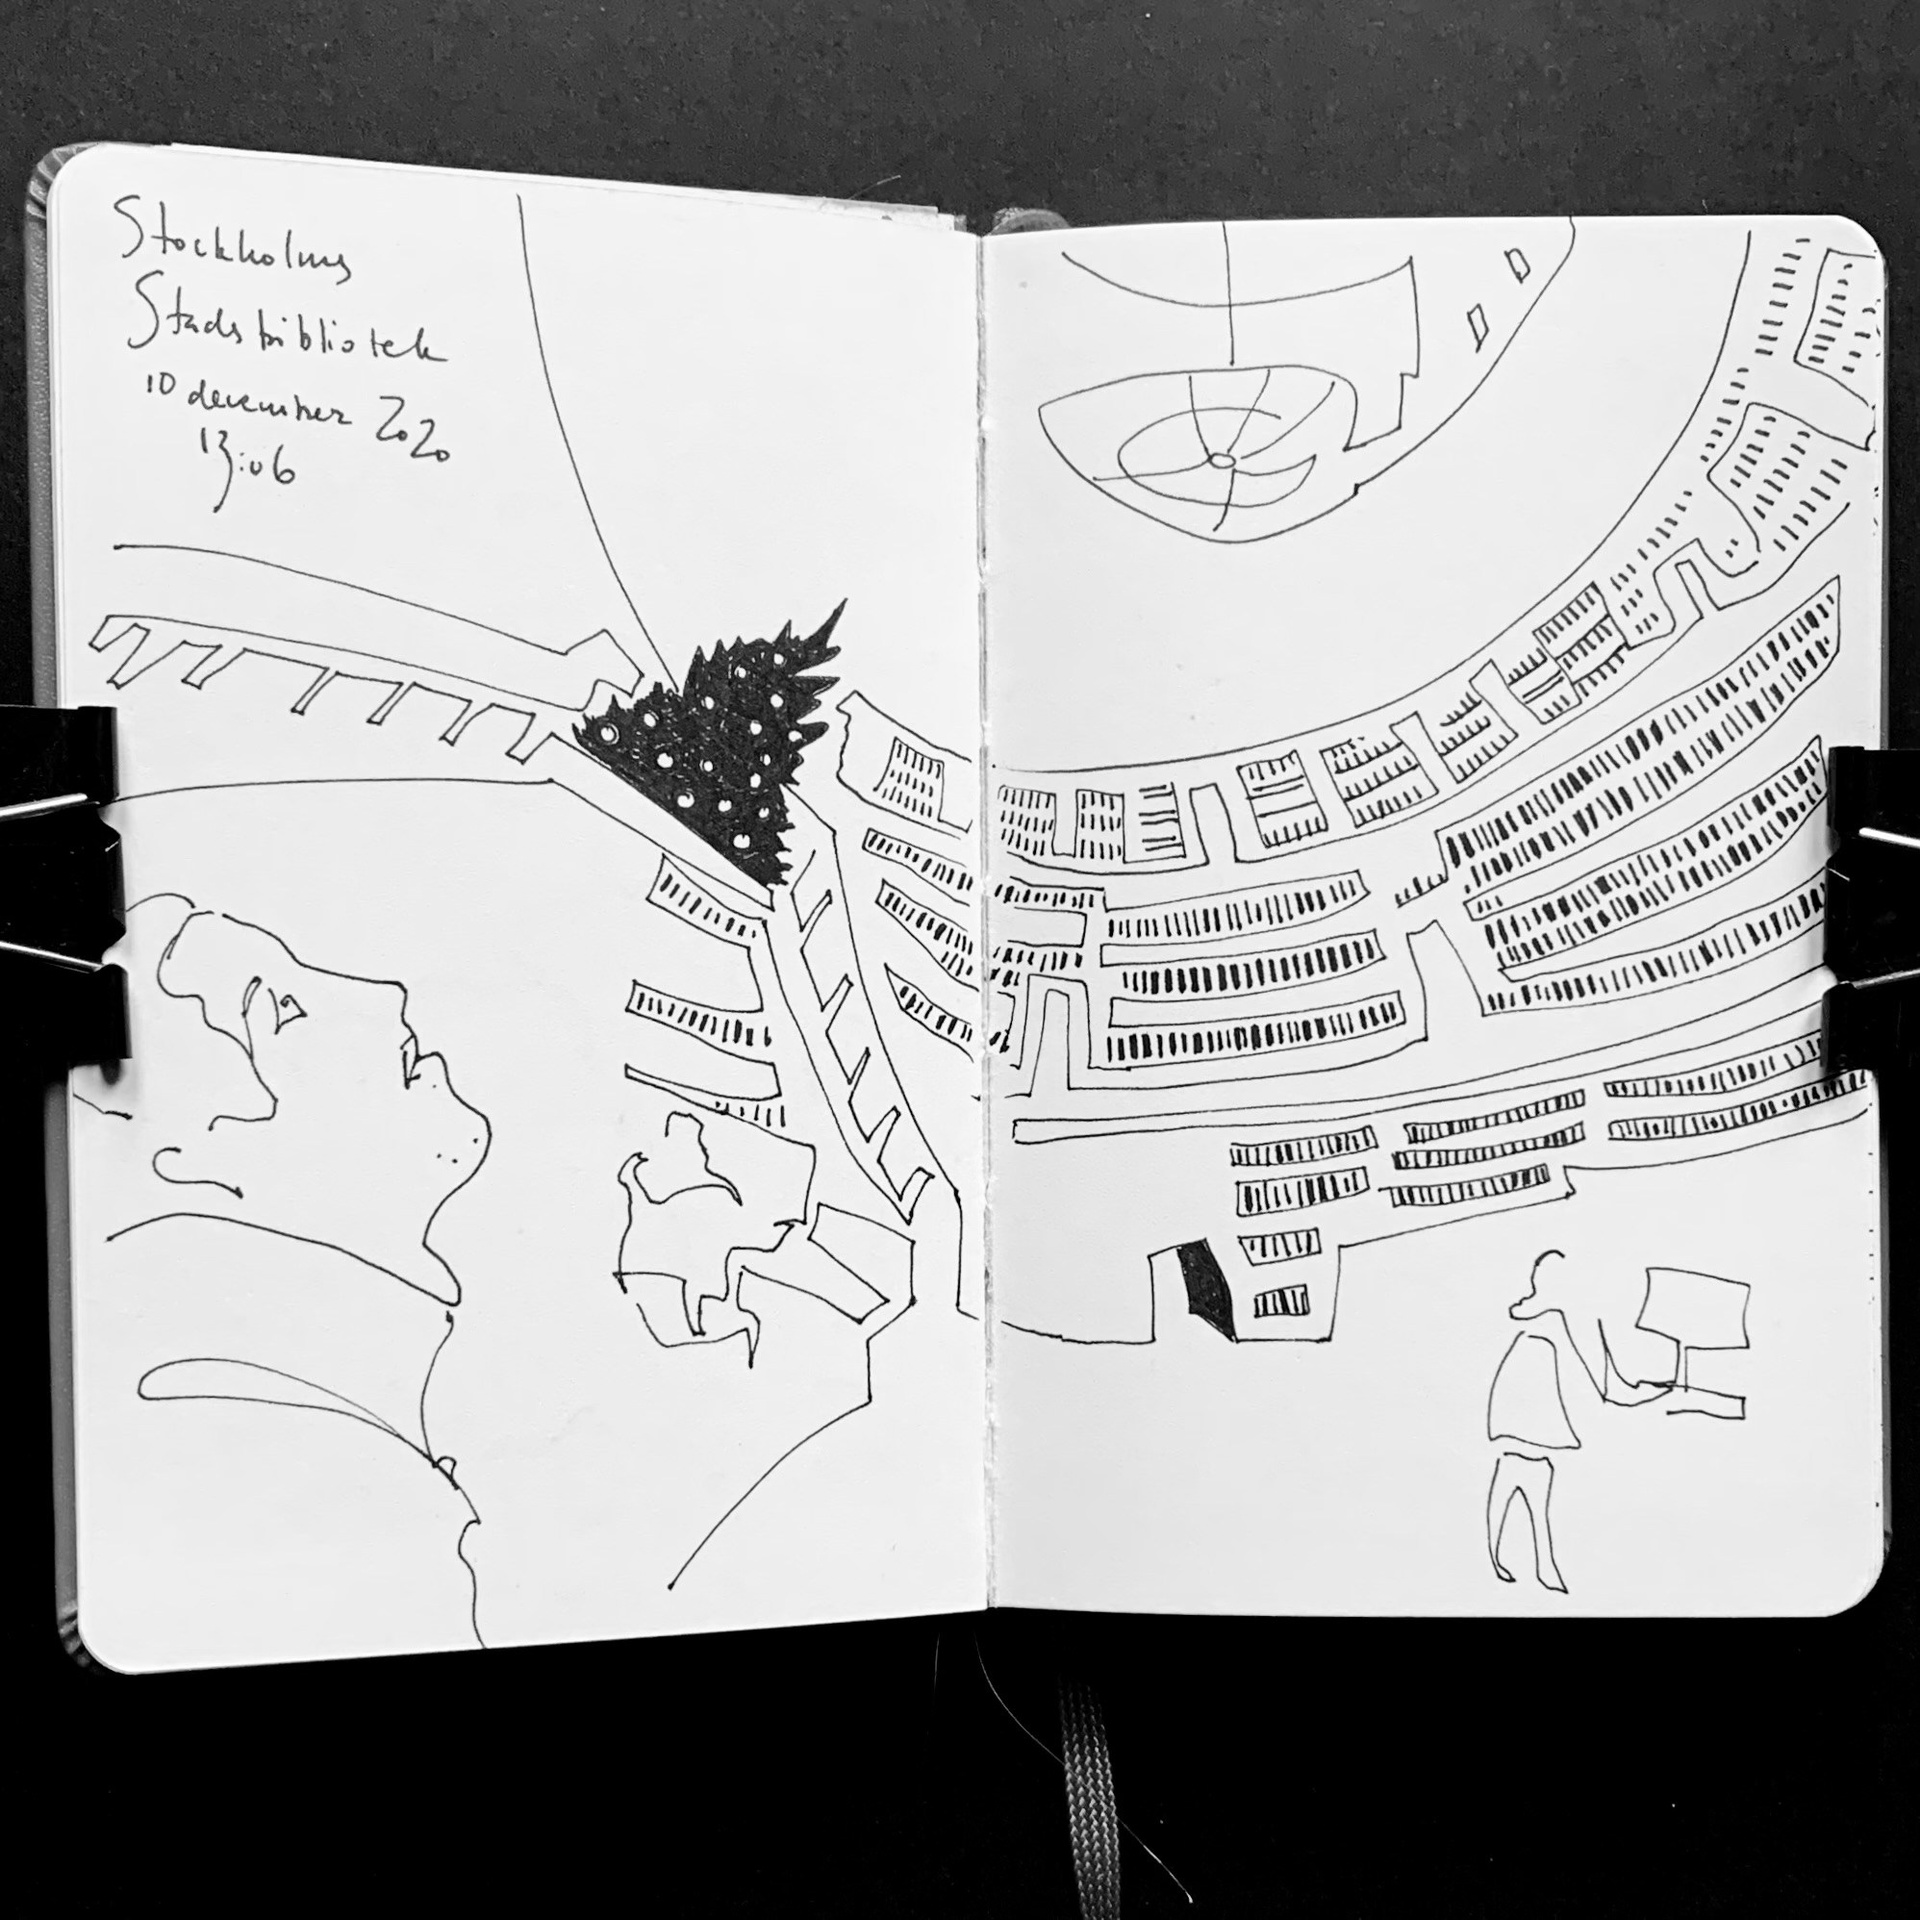 Stockholms
Stadsbibliotek
10 december 2020
13:06